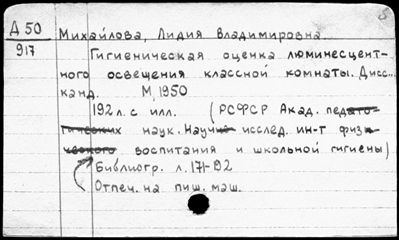 Д 50
917
Михайлова, Лидия Владимировна
Гигиеническая оценка люминесцент-
ного освещения классной комнаты. Дисс.
канд. М, 1950
192 л. с илл. (РСФСР Акад. педаго-
гических наук. Научн исслед. ин-т физи-
ческого воспитания и школьной гигиены)
Библиогр. л. 171-192
Отпеч. на пиш. маш.